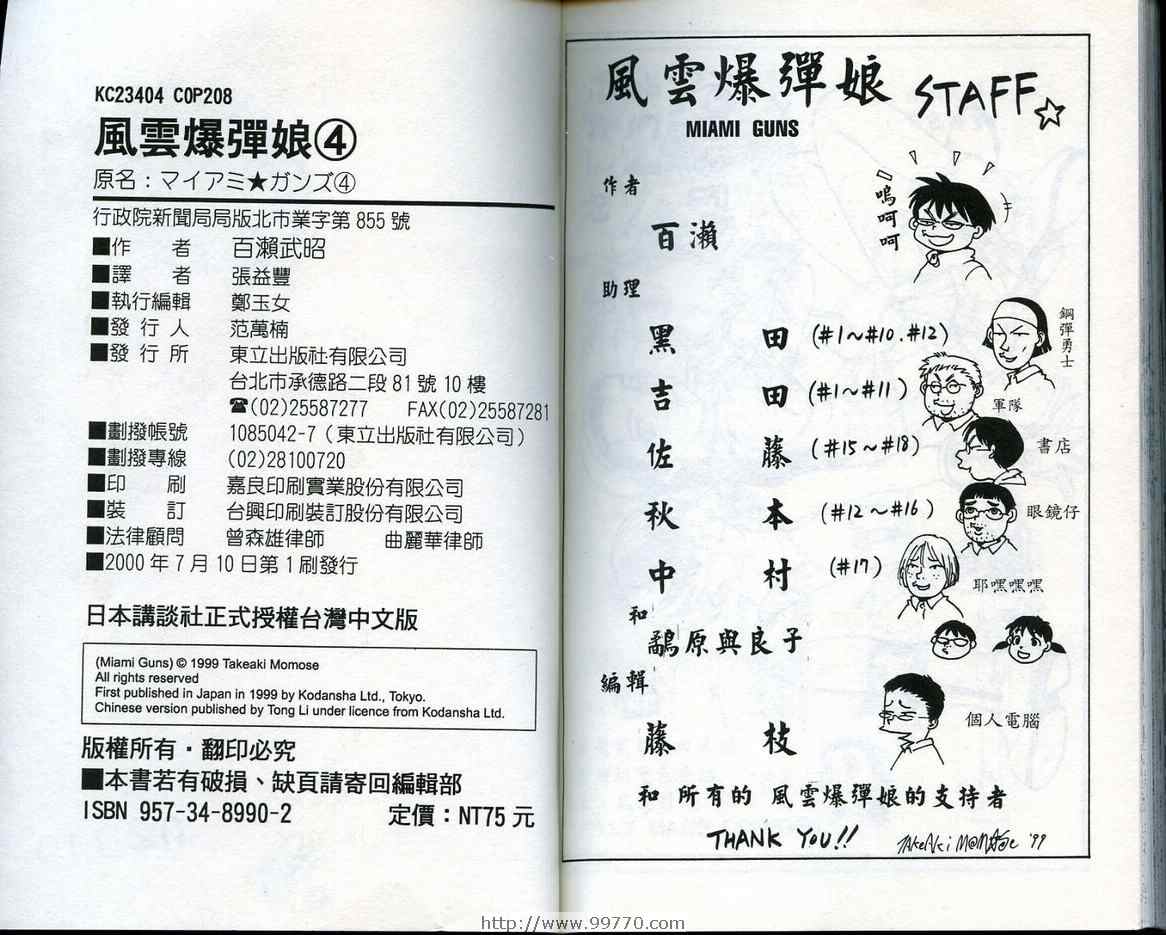 KC23404 COP208
風雲爆彈娘④
原名：マイアミ★ガンズ④
行政院新聞局局版北市業字第 855 號
■作　者　百瀨武昭
■譯　者　張益豐
■執行編輯　鄭玉女
■發 行 人　范萬楠
■發 行 所　東立出版社有限公司
台北市承德路二段 81 號 10 樓
☎(02)25587277　FAX(02)25587281
■劃撥帳號　1085042-7（東立出版社有限公司）
■劃撥專線　(02)28100720
■印　刷　嘉良印刷實業股份有限公司
■裝　訂　台興印刷裝訂股份有限公司
■法律顧問　曾森雄律師　曲麗華律師
■2000 年 7 月 10 日第 1 刷發行
日本講談社正式授權台灣中文版
(Miami Guns) © 1999 Takeaki Momose
All rights reserved
First published in Japan in 1999 by Kodansha Ltd., Tokyo.
Chinese version published by Tong Li under licence from Kodansha Ltd.
版權所有・翻印必究
■本書若有破損、缺頁請寄回編輯部
ISBN 957-34-8990-2　定價：NT75 元
風雲爆彈娘 STAFF☆
MIAMI GUNS
作者
百瀨
嗚呵呵
助理
黑田 (#1～#10.#12)
鋼彈勇士
吉田 (#1～#11)
軍隊
佐藤 (#15～#18)
書店
秋本 (#12～#16)
眼鏡仔
中村 (#17)
耶嘿嘿嘿
和
鷸原與良子
編輯
藤枝
個人電腦
和 所有的 風雲爆彈娘的支持者
THANK YOU!!
TAkeAki MOMOSe '99
http://www.99770.com